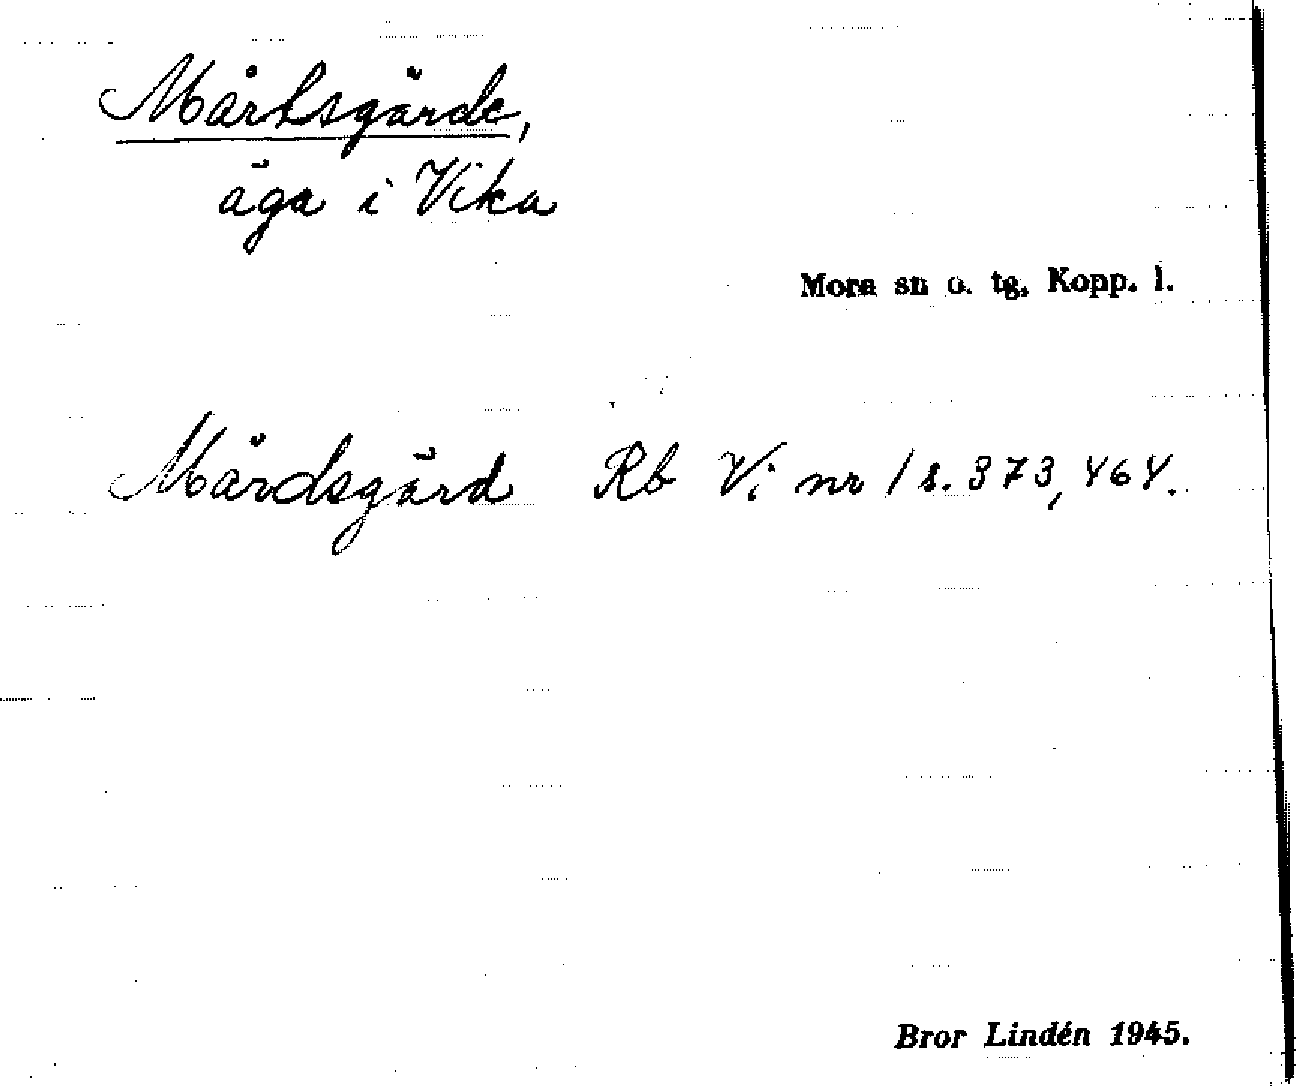 Mårtsgärde,
äga i Vika
Mora sn o. tg, Kopp. l.
Mårdsgärd Rb Vi nr 1 s. 373, 464.
Bror Lindén 1945.